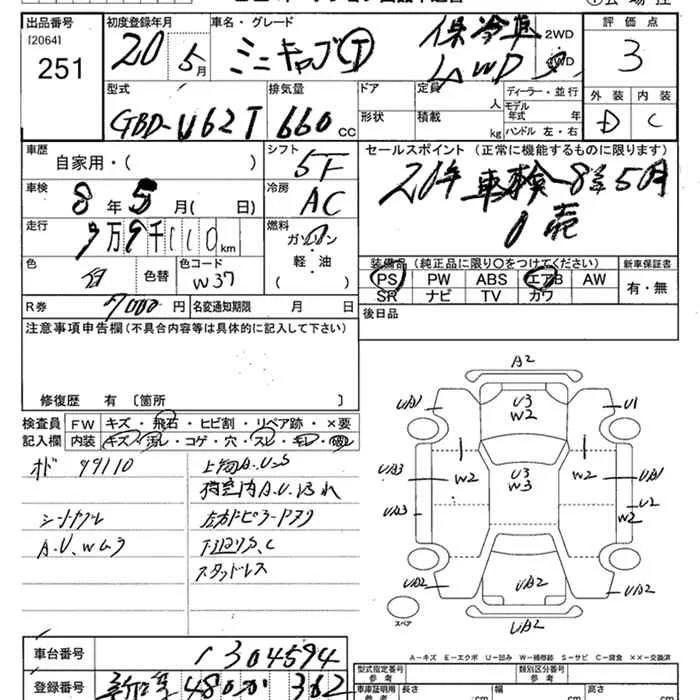 出品番号 初度登録年月 車名・グレード 評価点
[2064]
251 20 5月 ミニキャブ 保冷車 2WD 3
4WD
型式 排気量 ドア 定員 人 ディーラー・並行 外装 内装
GBD-U62T 660 CC 形状 積載 kg モデル年式 年 D C
ハンドル 左・右
車歴 シフト セールスポイント (正常に機能するものに限ります)
自家用・( ) 5F
車検 冷房 20年 車検 8年5月
8年5月( 日) AC
走行 燃料
9万9千110km ガソリン
軽・油
( )
色 色替 色コード
白 W37
装備品(純正品に限り○をつけてください) 新車保証書
PS PW ABS エアB AW 有・無
SR ナビ TV カワ
R券 7000円 名変通知期限 月 日 後日品
注意事項申告欄(不具合内容等は具体的に記入して下さい)
修復歴 有 〔箇所 〕
検査員 FW キズ・飛石・ヒビ割・リペア跡・×要
記入欄 内装 キズ・汚レ・コゲ・穴・スレ・キレ・
99110
スタッドレス
A2
UA1 U3 W2 U1
UA3 W2 U3 W3 W2 UA1
UA3 U2 W2
UA2 UA2 UA2
スペア UA2
A-キズ E-エクボ U-凹み W-補修跡 S-サビ C-腐食 ××-交換済
車台番号 304594
型式指定番号 参考 類別区分番号 参考
登録番号 480 362
車庫証明用 参考 長さ cm 幅 cm 高さ cm